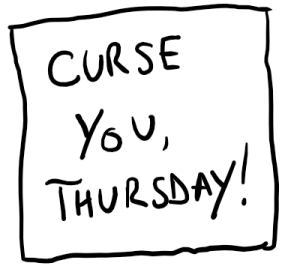 CURSE
YOU,
THURSDAY!